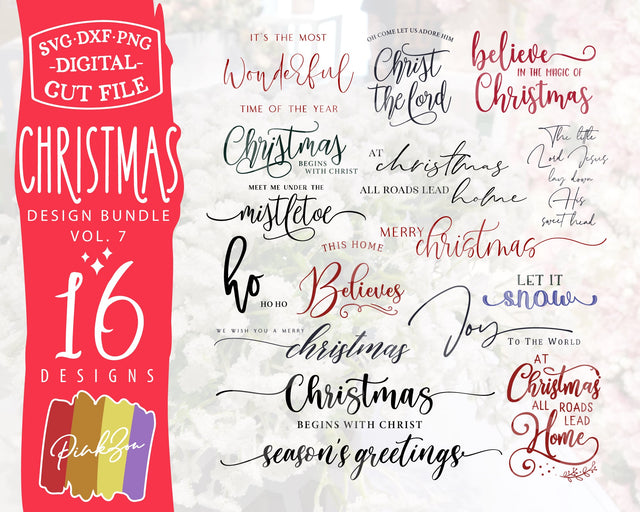 SVG·DXF·PNG
-DIGITAL-
CUT FILE
CHRISTMAS
DESIGN BUNDLE
VOL. 7
16
DESIGNS
PinkZou
IT'S THE MOST
Wonderful
TIME OF THE YEAR
OH COME LET US ADORE HIM
Christ
The Lord
believe
IN THE MAGIC OF
Christmas
Christmas
BEGINS
WITH CHRIST
AT christmas
ALL ROADS LEAD home
The little
Lord Jesus
lay down
His
sweet head
MEET ME UNDER THE
mistletoe
MERRY christmas
ho
HO HO
THIS HOME
Believes
LET IT
snow
WE WISH YOU A MERRY
christmas
Joy
TO THE WORLD
Christmas
BEGINS WITH CHRIST
season's greetings
AT
Christmas
ALL ROADS
LEAD
Home